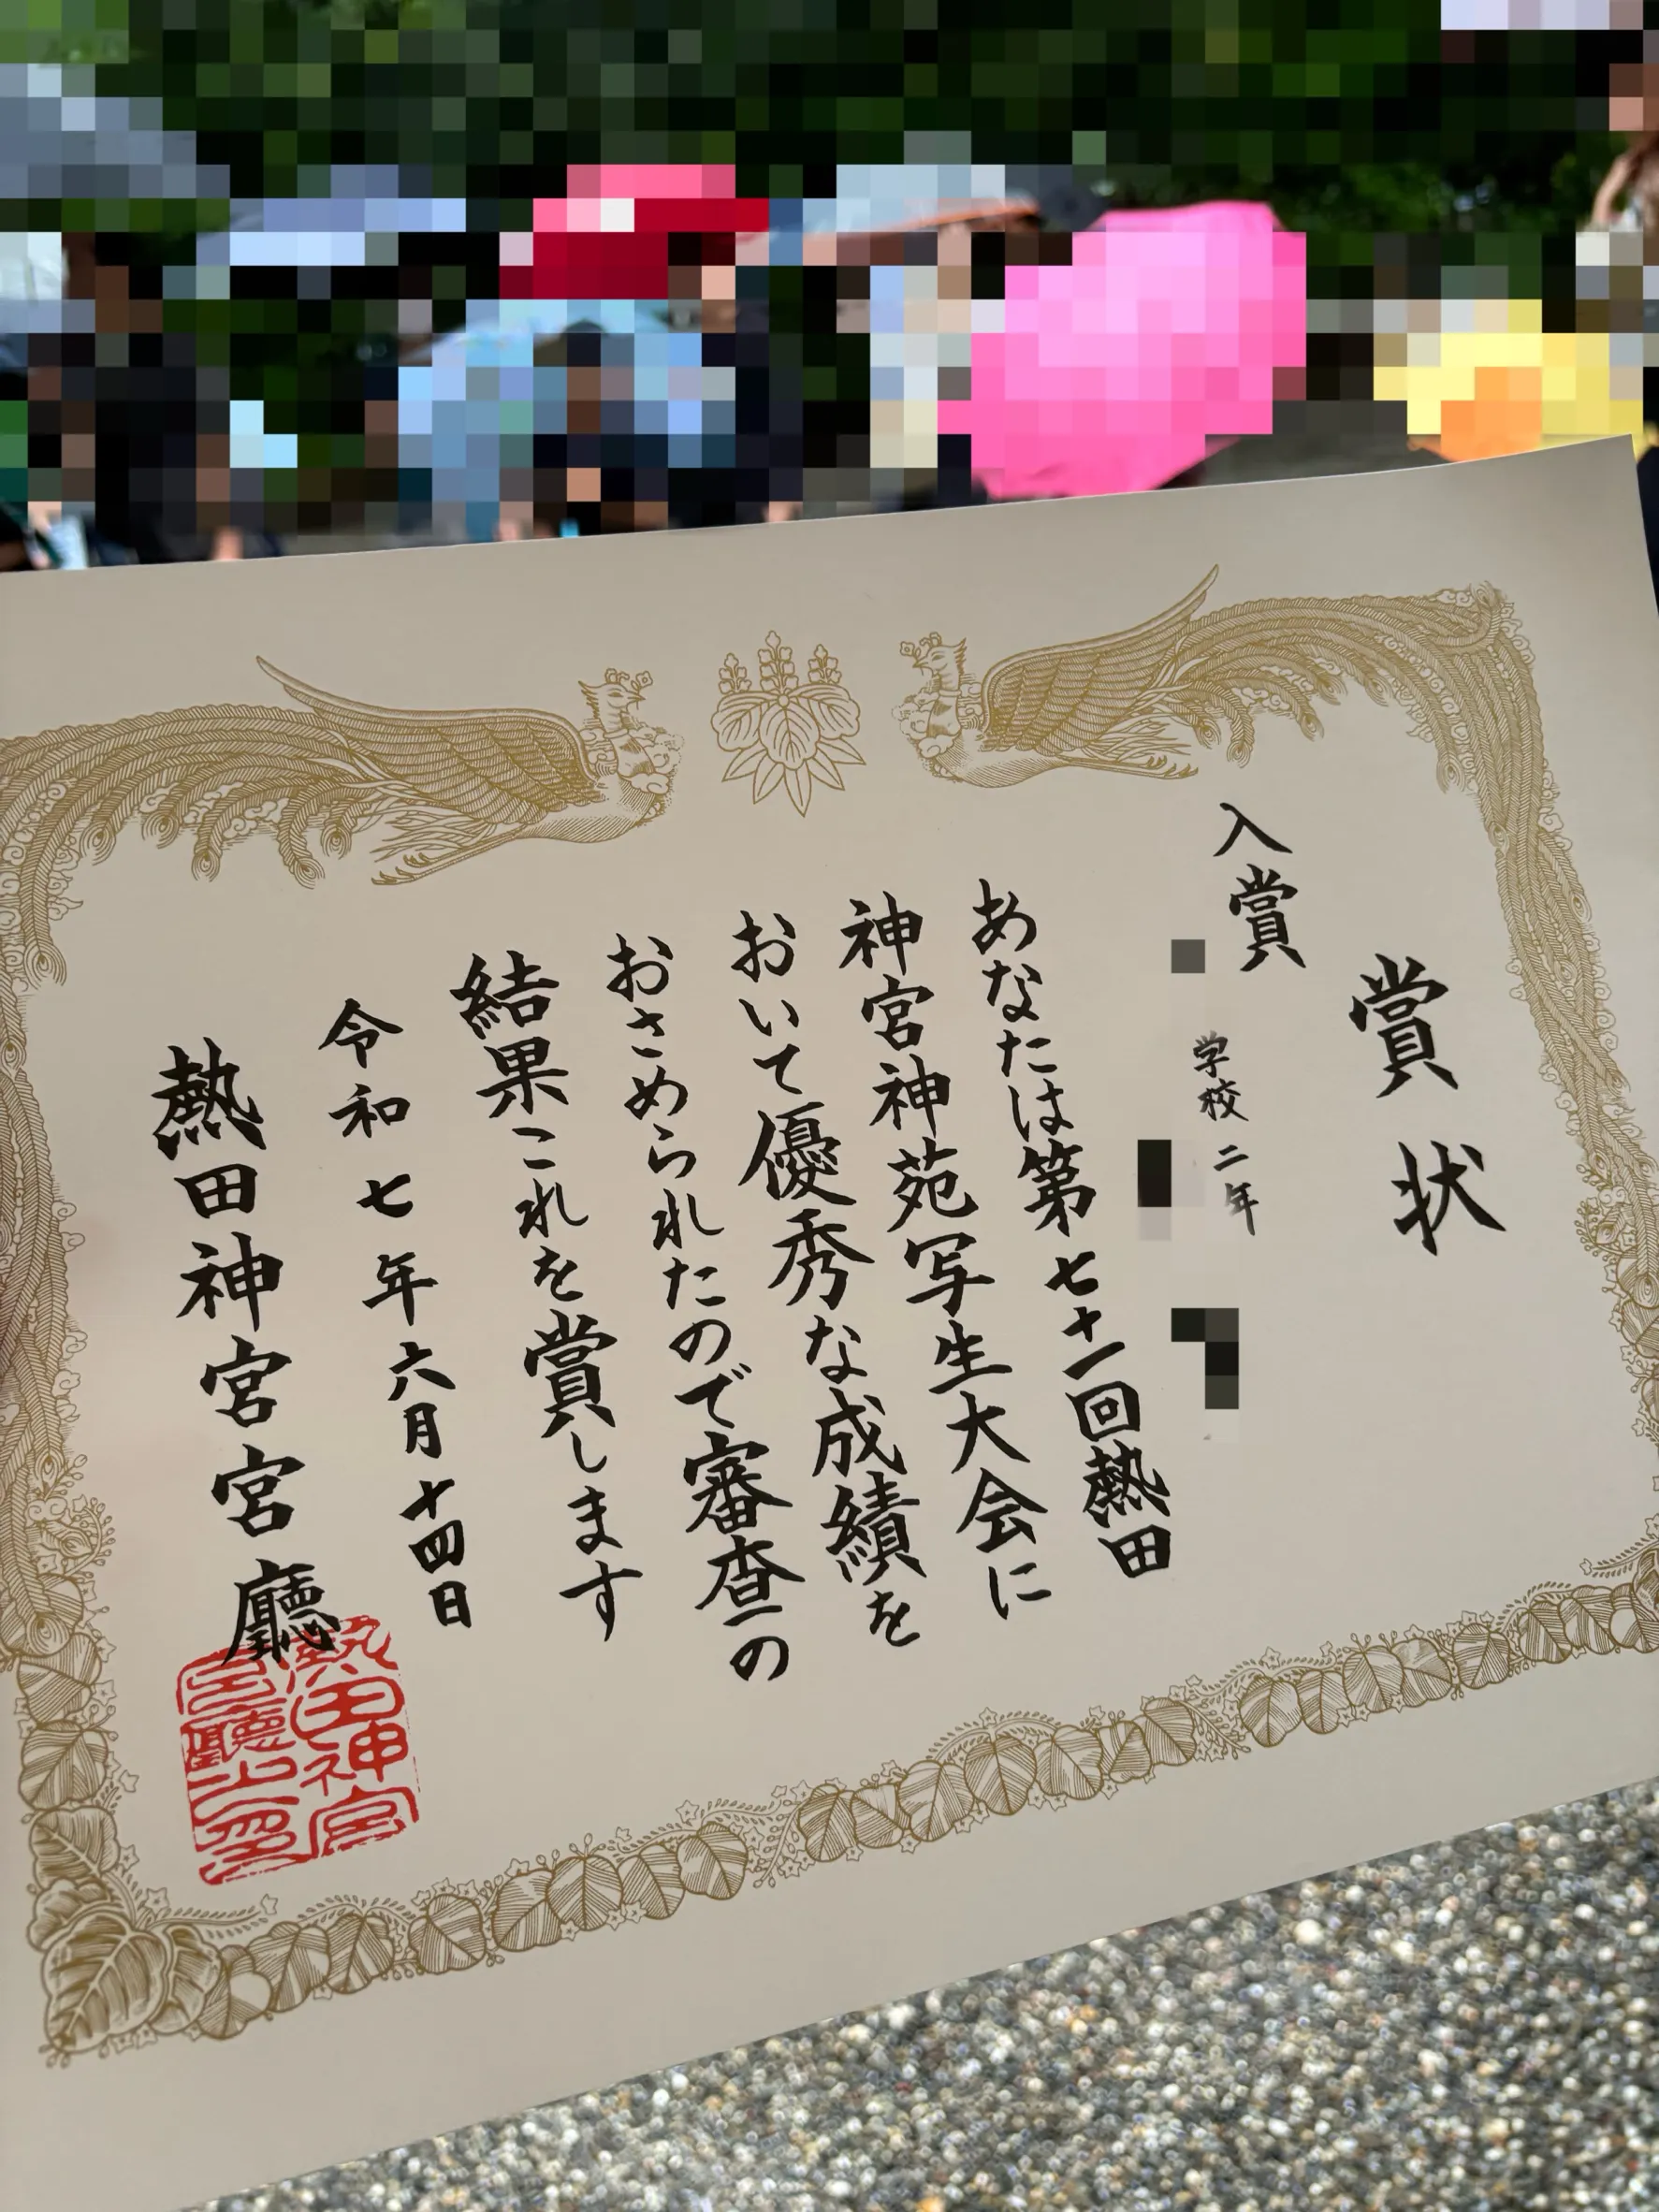 賞状
入賞
学校二年
あなたは第七十一回熱田
神宮神苑写生大会に
おいて優秀な成績を
おさめられたので審査の
結果これを賞します
令和七年六月十四日
熱田神宮宮廳
熱田神宮
宮廳之印